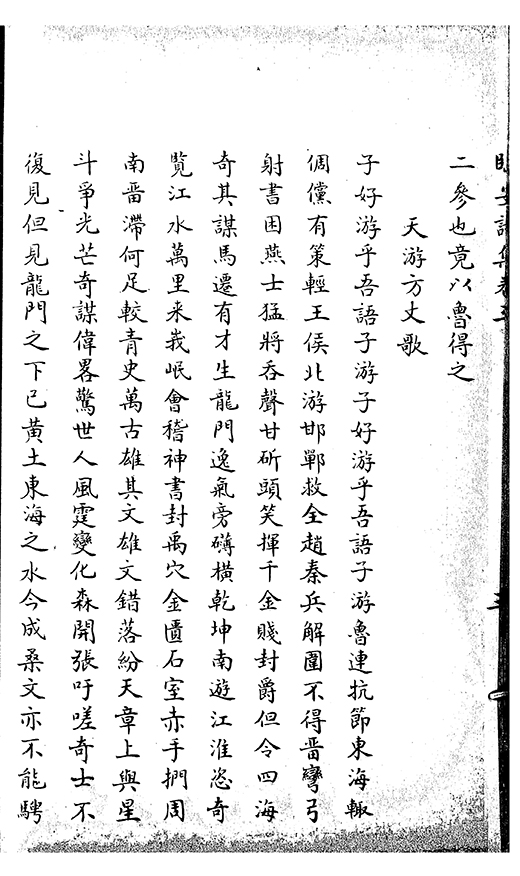 二參也竟以魯得之
天游方丈歌
子好游乎吾語子游子好游乎吾語子游魯連抗節東海輙
倜儻有策輕王侯北游邯鄲救全趙秦兵解圍不得畱彎弓
射書困燕士猛將吞聲甘斫頭笑揮千金賤封爵但令四海
奇其謀馬遷有才生龍門逸氣旁礴橫乾坤南遊江淮恣奇
覽江水萬里来峩岷會稽神書封禹穴金匱石室赤手捫周
南畱滯何足較青史萬古雄其文雄文錯落紛天章上與星
斗爭光芒奇謀偉畧驚世人風霆變化森開張吁嗟奇士不
復見但見龍門之下已黄土東海之水今成桑文亦不能騁